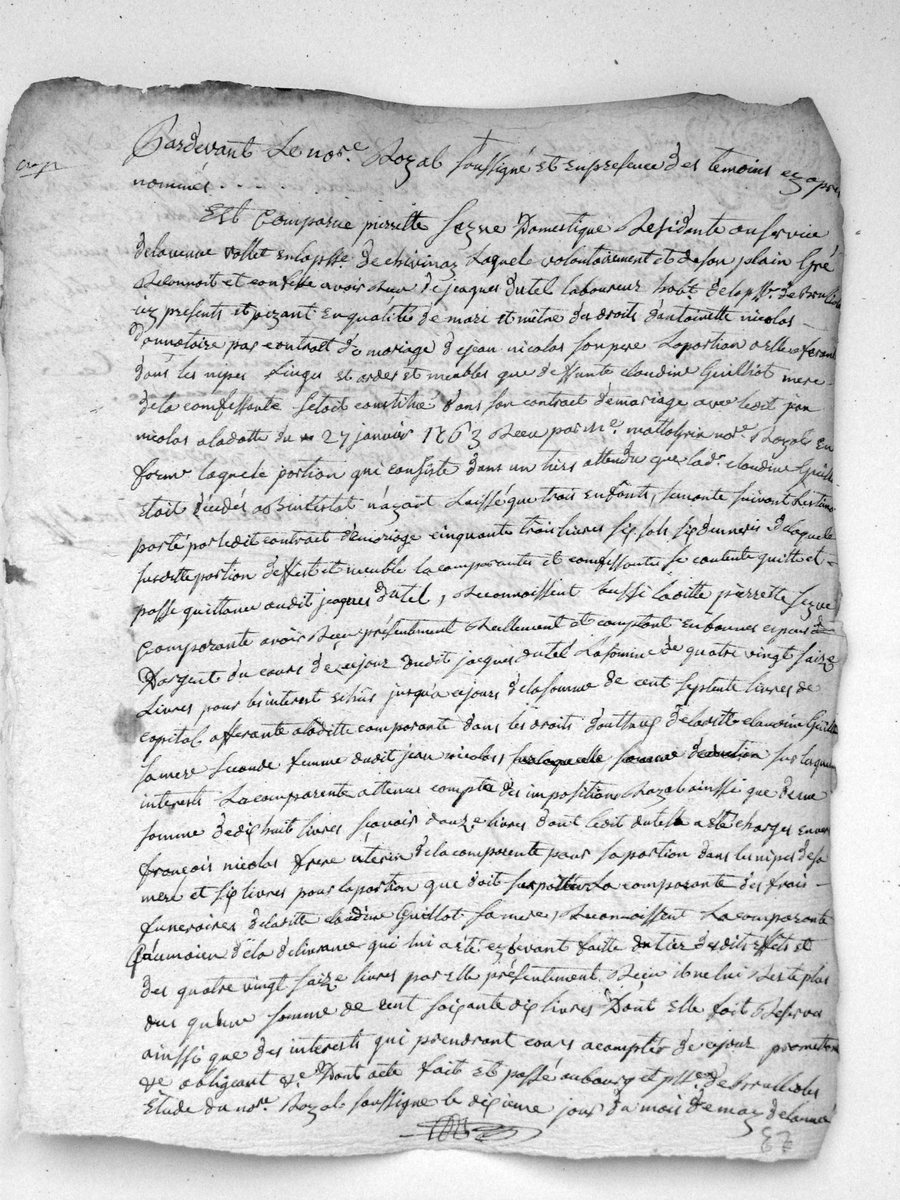 Pardevant Le no.re Royal soussigné et en presence des temoins cy apres
nommés
Est Comparüe pierrette Domestique Residente au service
de la veuve vollet en la psse. de laquele volontairement et de son plain Gré
Reconnoit et confesse avoir Receu de jacques dutel laboureur hab.t de la pss.e de
icy presents et en qualité de mari et mètre des droits d'antoinette nicolas
donnatoire par contrat de mariage de jean nicolas son pere La portion a elle afferante
dans les nipes Linges et meubles que deffunte claudine Guilliot mere
de la confessante setoit constitüé dans son contrat de mariage avec ledit jean
nicolas a la datte du 27 janvier 1763 Receu par M.e no.re Royal en
forme laquele portion qui consiste dans un tiers attendu que lad. claudine
Etoit décédés ab intestat n'ayant Laissé que trois enfants, se monte suivant
porté par ledit contrat de mariage cinquante trois livres six sols six denniers de laquele
susditte portion d'effest et meuble la comparante et confessante se contente quitte et
passe quittance audit jacques dutel, Reconnoissent aussi laditte pierrette
Comparante avoir Receu présentement Reellement et comptant en bonnes espesces
D'argent du cours de ce jour dudit jacques dutel La somme de quatre vingt saize
Livres pour les interest echüs jusqu'a ce jours de la somme de cent septente livres de
capital afferante a laditte comparante dans les droits de laditte claudine
sa mere seconde femme dudit jean nicolas, sur laquelle somme deduction sur lesquels
interests La comparente a tenus compte des impositions Royal ainssi que d'une
somme de dix huit livres scavoir douze livres dont ledit dutel a eté charges envers
françois nicolas frere uterin de la comparente pour sa portion dans les nipes de sa
mere et six livres pour la portion que doit supporter La comparante des frais
funeraires de laditte claudine Guillot sa mere, Reconnoissent La comparante
qu'aumoien de la delivrance qui lui a eté cy devant faitte du tier desdits effets et
des quatre vingt saize livres par elle présentement Receu il ne lui Reste plus
dus qu'une somme de cent soixante dix livres Dont elle fait Reserves
ainssi que des interests qui prendront cours a compter de ce jour promettant
&c obligeant &c Dont acte fait et passé au bourg et pss.e de
Etude du no.re Royal soussigné le dixieme jour du mois de may de lanné